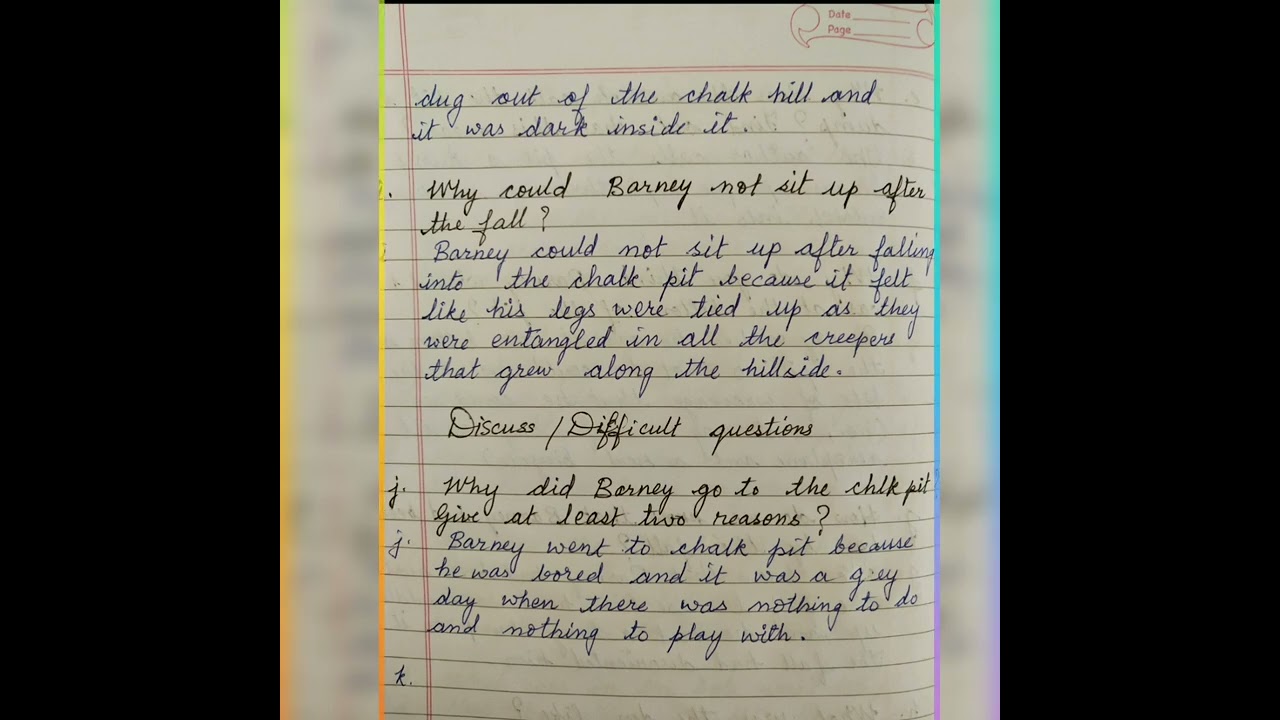 Date
Page
dug out of the chalk hill and
it was dark inside it.
Why could Barney not sit up after
the fall?
i Barney could not sit up after falling
into the chalk pit because it felt
like his legs were tied up as they
were entangled in all the creepers
that grew along the hillside.
Discuss / Difficult questions
j. Why did Barney go to the chlk pit
Give at least two reasons?
j. Barney went to chalk pit because
he was bored and it was a g.ey
day when there was nothing to do
and nothing to play with.
k.